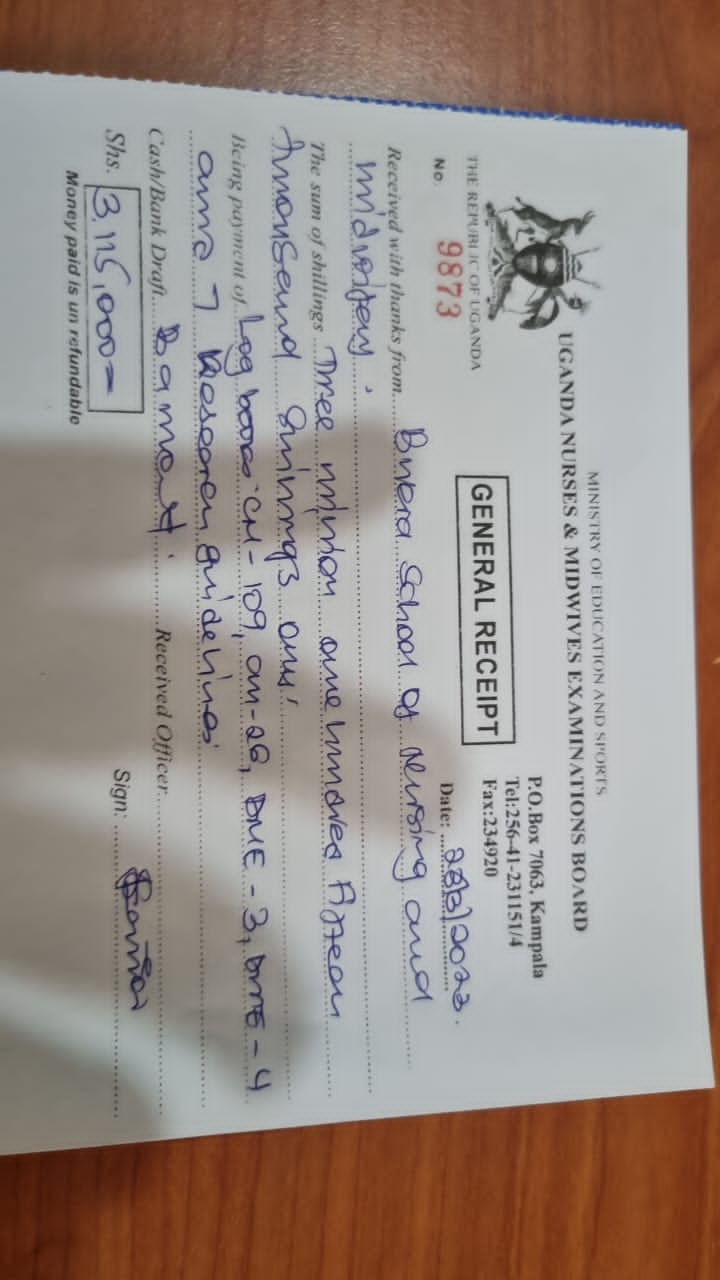 MINISTRY OF EDUCATION AND SPORTS
UGANDA NURSES & MIDWIVES EXAMINATIONS BOARD
P.O.Box 7063, Kampala
Tel:256-41-231151/4
Fax:234920
THE REPUBLIC OF UGANDA
GENERAL RECEIPT
No. 9873
Date:
Received with thanks from Bwera School of Nursing and
midwifery.
The sum of shillings Three million one hundred Fifteen
Thousand Shillings only
Being payment of Log books CM-109, CN-28, DME-3,
and 7 Research guidelines
Cash/Bank Draft Received Officer
Shs. 3,115,000= Sign:
Money paid is un refundable